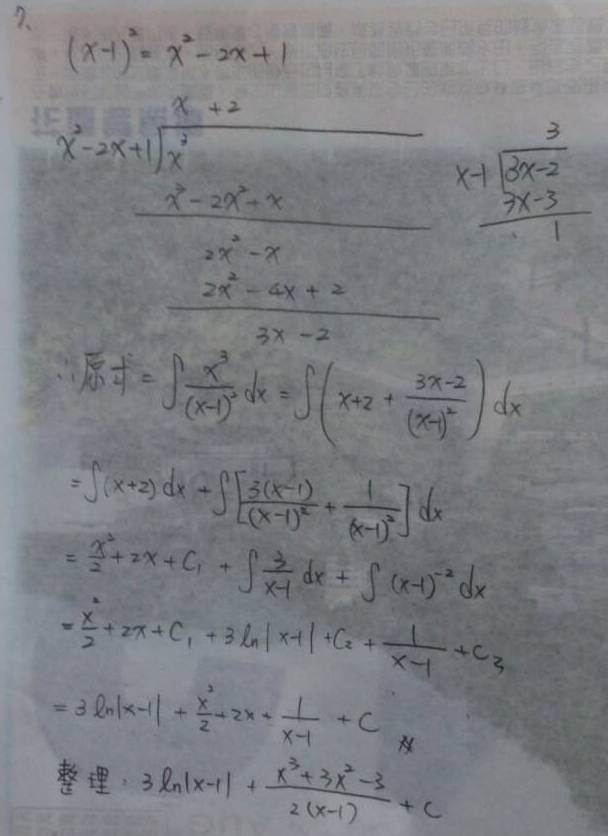 7.
(x-1)² = x² - 2x + 1
x + 2
x² - 2x + 1 ) x³
x³ - 2x² + x
2x² - x
2x² - 4x + 2
3x - 2
3
x-1 ) 3x-2
3x-3
1
∴原式 = ∫ x³/(x-1)² dx = ∫ ( x+2 + (3x-2)/(x-1)² ) dx
= ∫(x+2) dx + ∫[ 3(x-1)/(x-1)² + 1/(x-1)² ] dx
= x²/2 + 2x + C₁ + ∫ 3/(x-1) dx + ∫ (x-1)⁻² dx
= x²/2 + 2x + C₁ + 3 ln|x-1| + C₂ + 1/(x-1) + C₃
= 3 ln|x-1| + x²/2 + 2x + 1/(x-1) + C
整理: 3 ln|x-1| + (x³+3x²-3)/2(x-1) + C